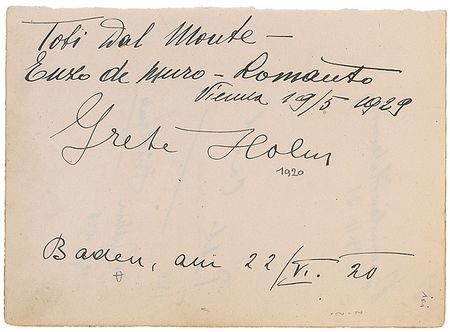 Toti Dal Monte –
Enzo de Muro – Lomanto
Vienna 19/5 1929
Grete Holm
1920
Baden, am 22/VI. 20